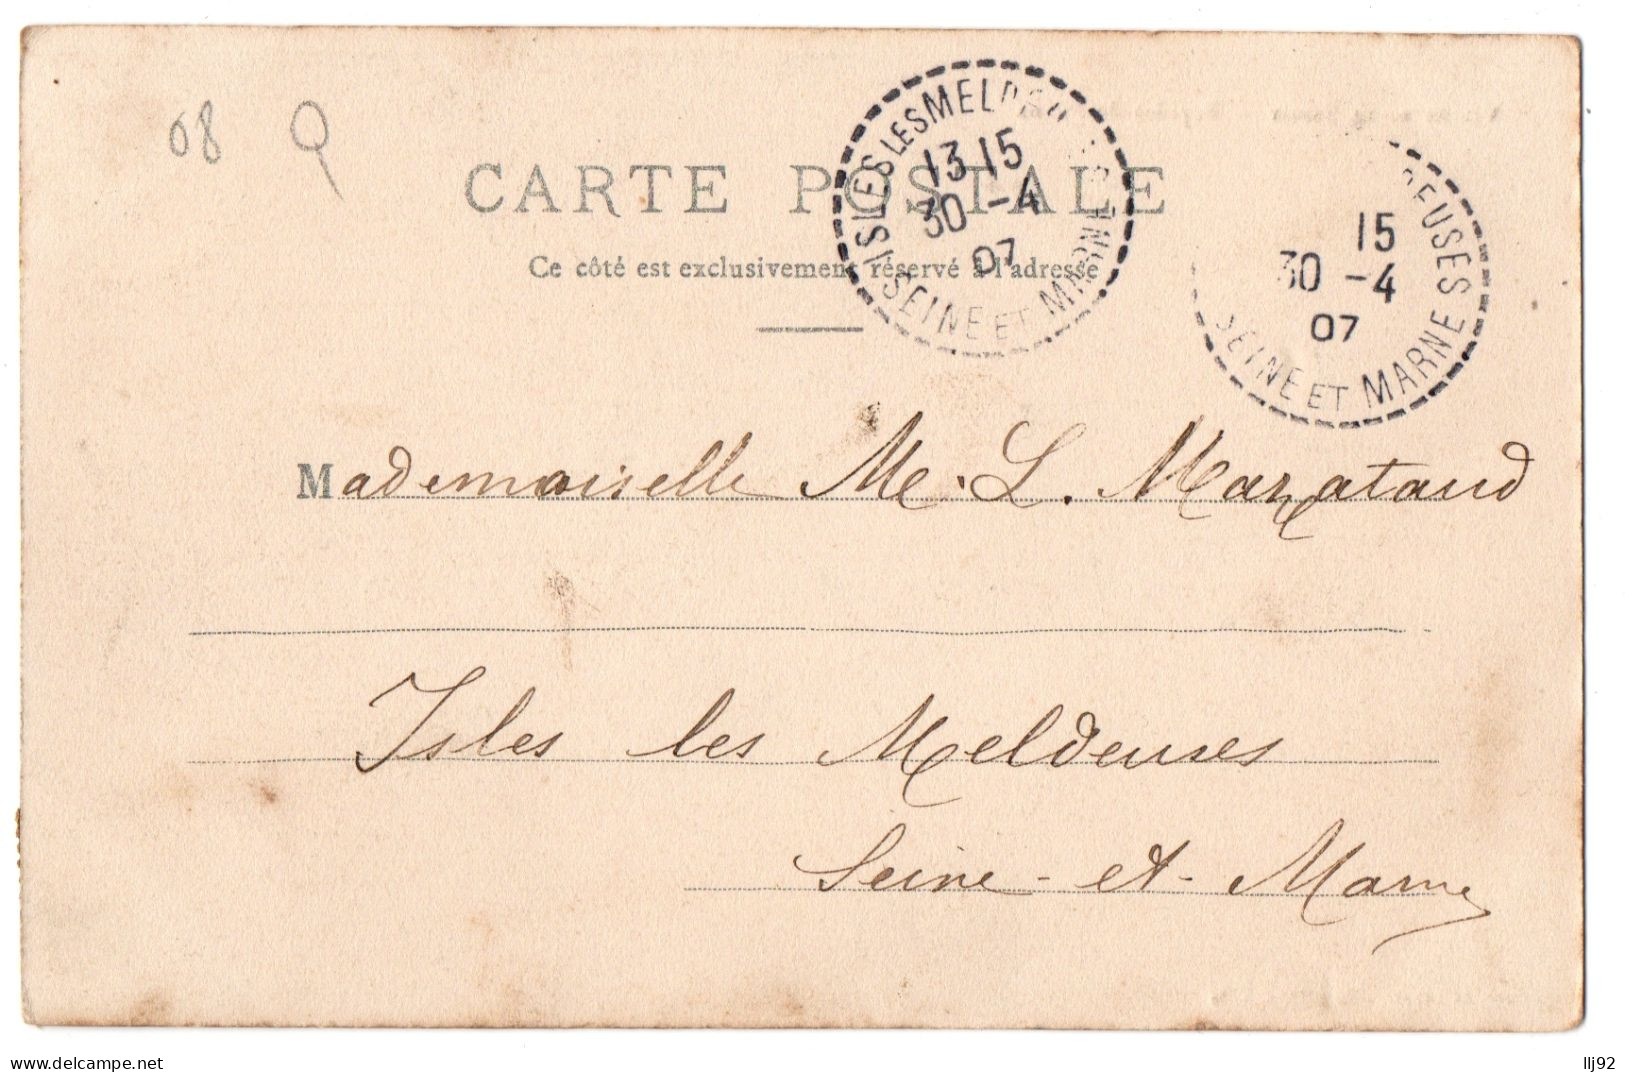 08
CARTE POSTALE
Ce côté est exclusivement réservé à l'adresse
ISLES LES MELDEUSES
13 15
30 -4
07
SEINE ET MARNE
EUSES
15
30 -4
07
SEINE ET MARNE
Mademoiselle M. L. Mazataud
Isles les Meldeuses
Seine-et-Marne
www.delcampe.net
llj92